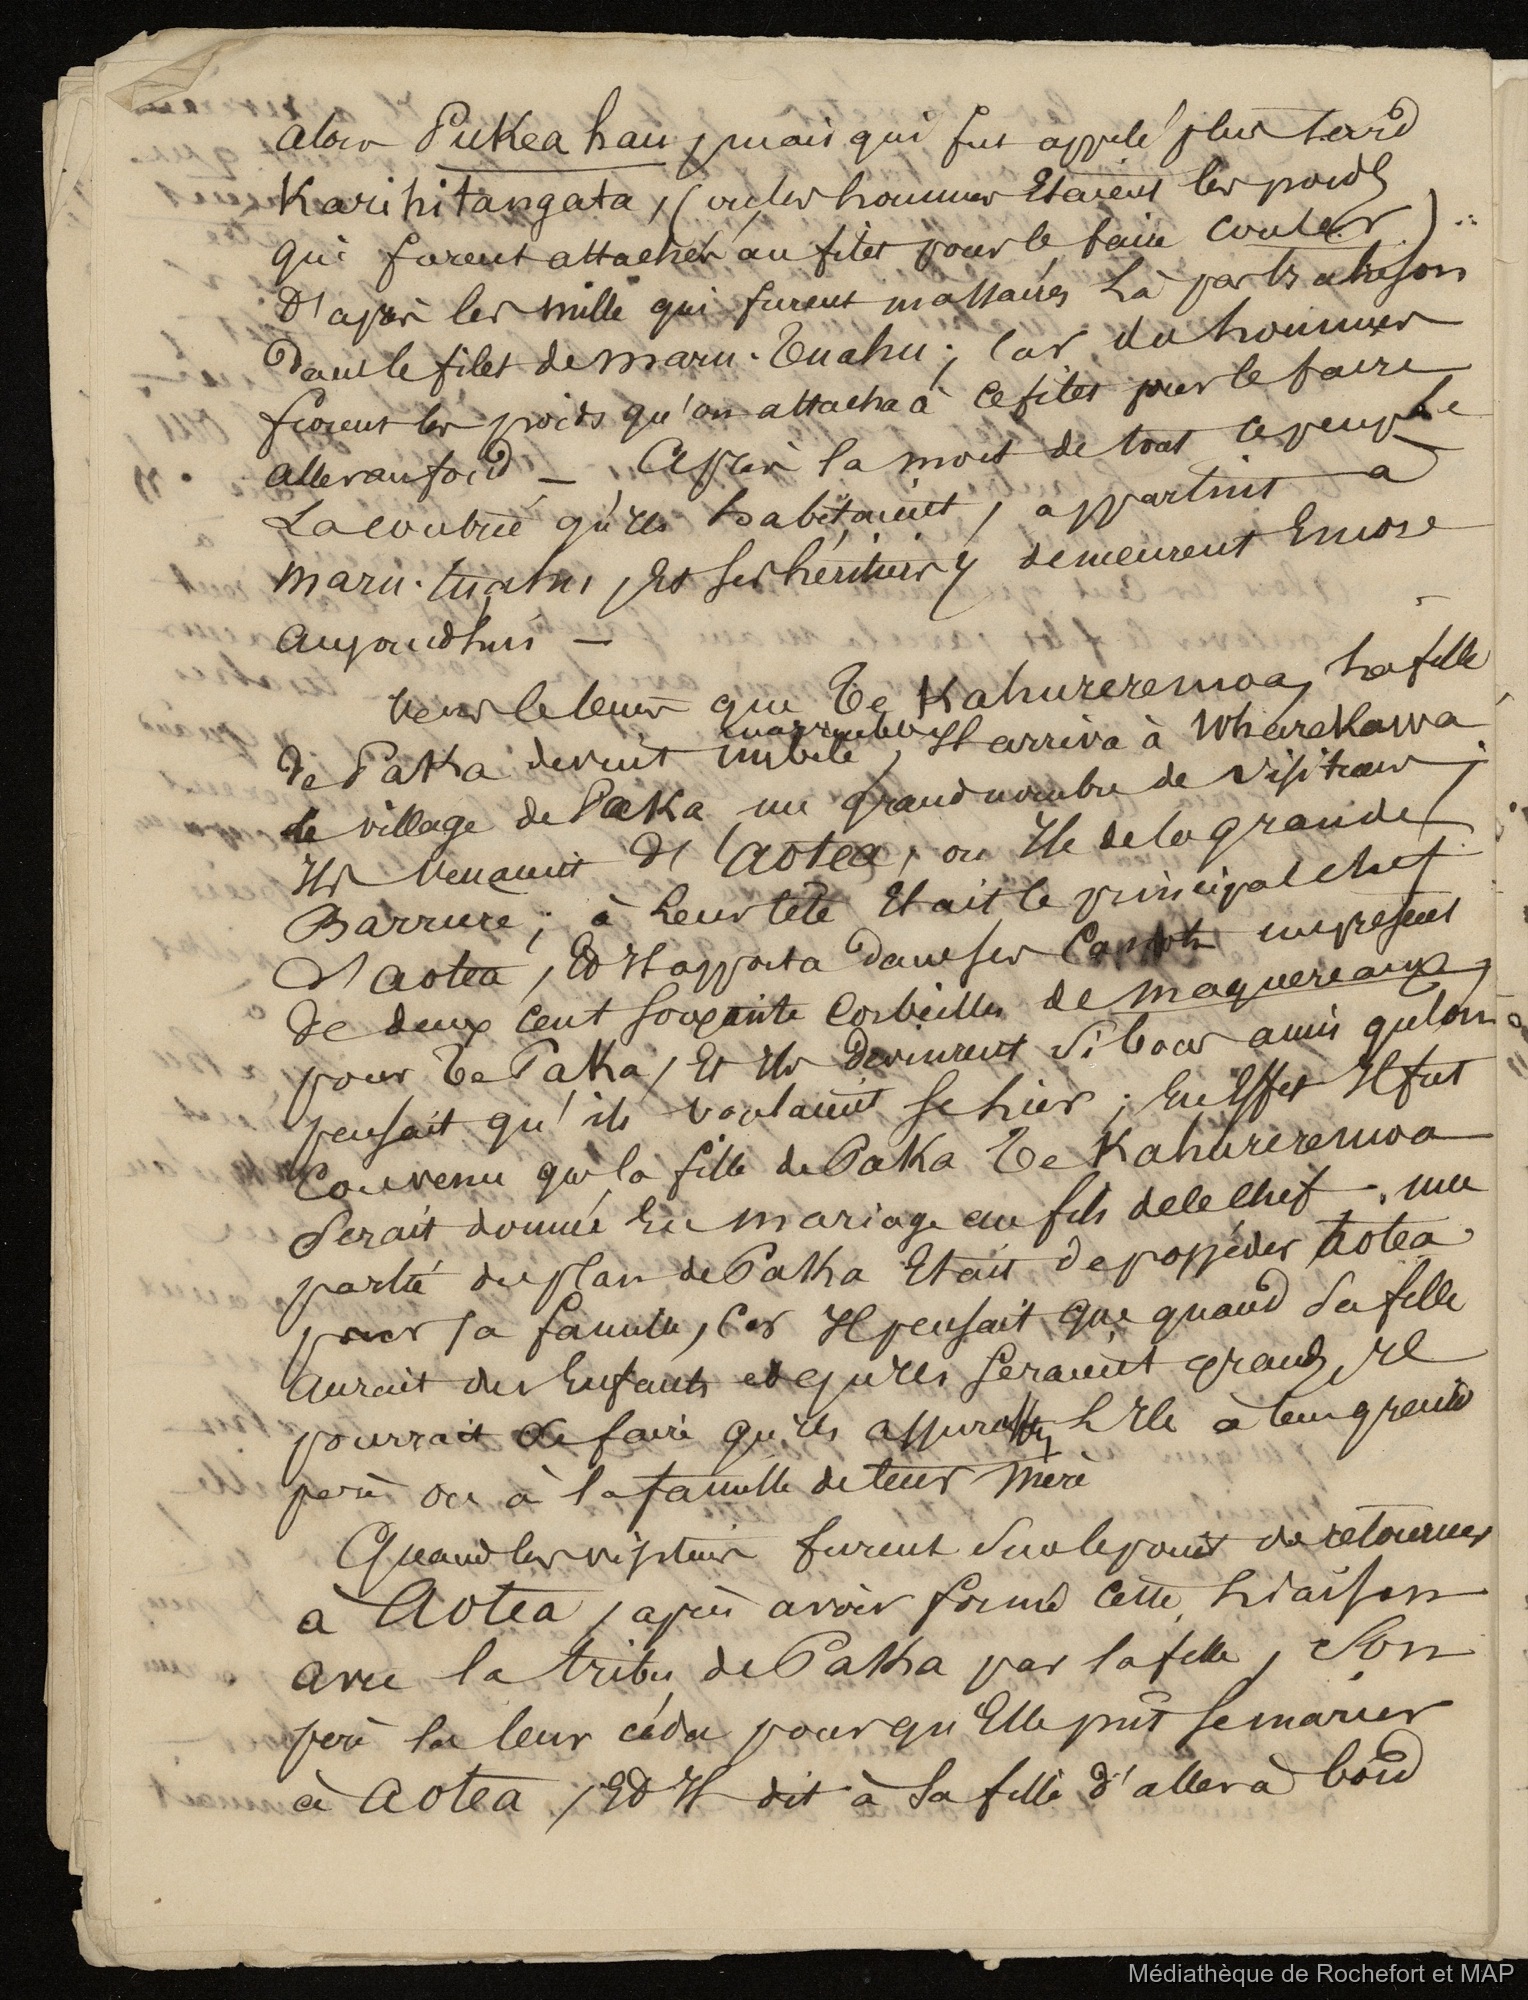 alors Pukeahau, mais qui fut appelé plus tard
Karihitangata, (ou les hommes Etaient les poids
qui furent attachés au filet pour le faire couler)
D'après les mille qui furent massacrés là par trahison
Dans le filet de maru-Tuahu; Car des hommes
furent les poids qu'on attacha à ce filet pour le faire
aller au fond — Après la mort de tout ce peuple
La contrée qu'ils habitaient, appartint à
maru-tuahu, Et ses héritiers y demeurent Encore
Aujourd'hui —
Vers le temps que Te Kahureremoa, La fille
de Paka devint nubile, Il arriva à Wharekawa
le village de Paka un grand nombre de visiteurs;
Ils venaient d'Aotea, ou Ile de la grande
Barrière; à Leur tête Etait le principal chef
d'Aotea, Et Il apporta dans ses Canots un présent
de deux cent soixante Corbeilles de maquereaux,
pour Te Paka, Et Ils devinrent si bons amis qu'on
pensait qu'ils voulaient se lier; En Effet Il fut
Convenu que la fille de Paka Te Kahureremoa
Serait donnée En mariage au fils de ce chef. une
partie du plan de Paka Etait de posséder Aotea
pour sa famille, Car Il pensait que quand Sa fille
Aurait des Enfants et qu'Ils seraient grands, Il
pourrait se faire qu'ils assurassent L'Ile à leur grand
père ou à la famille de leur Mère
Quand les visiteurs furent Sur le point de retourner
à Aotea, après avoir formé cette Liaison
avec la tribu de Paka par la fille, Son
père la leur céda pour qu'Elle pût se marier
à Aotea, Et Il dit à Sa fille d'aller à bord
Médiathèque de Rochefort et MAP